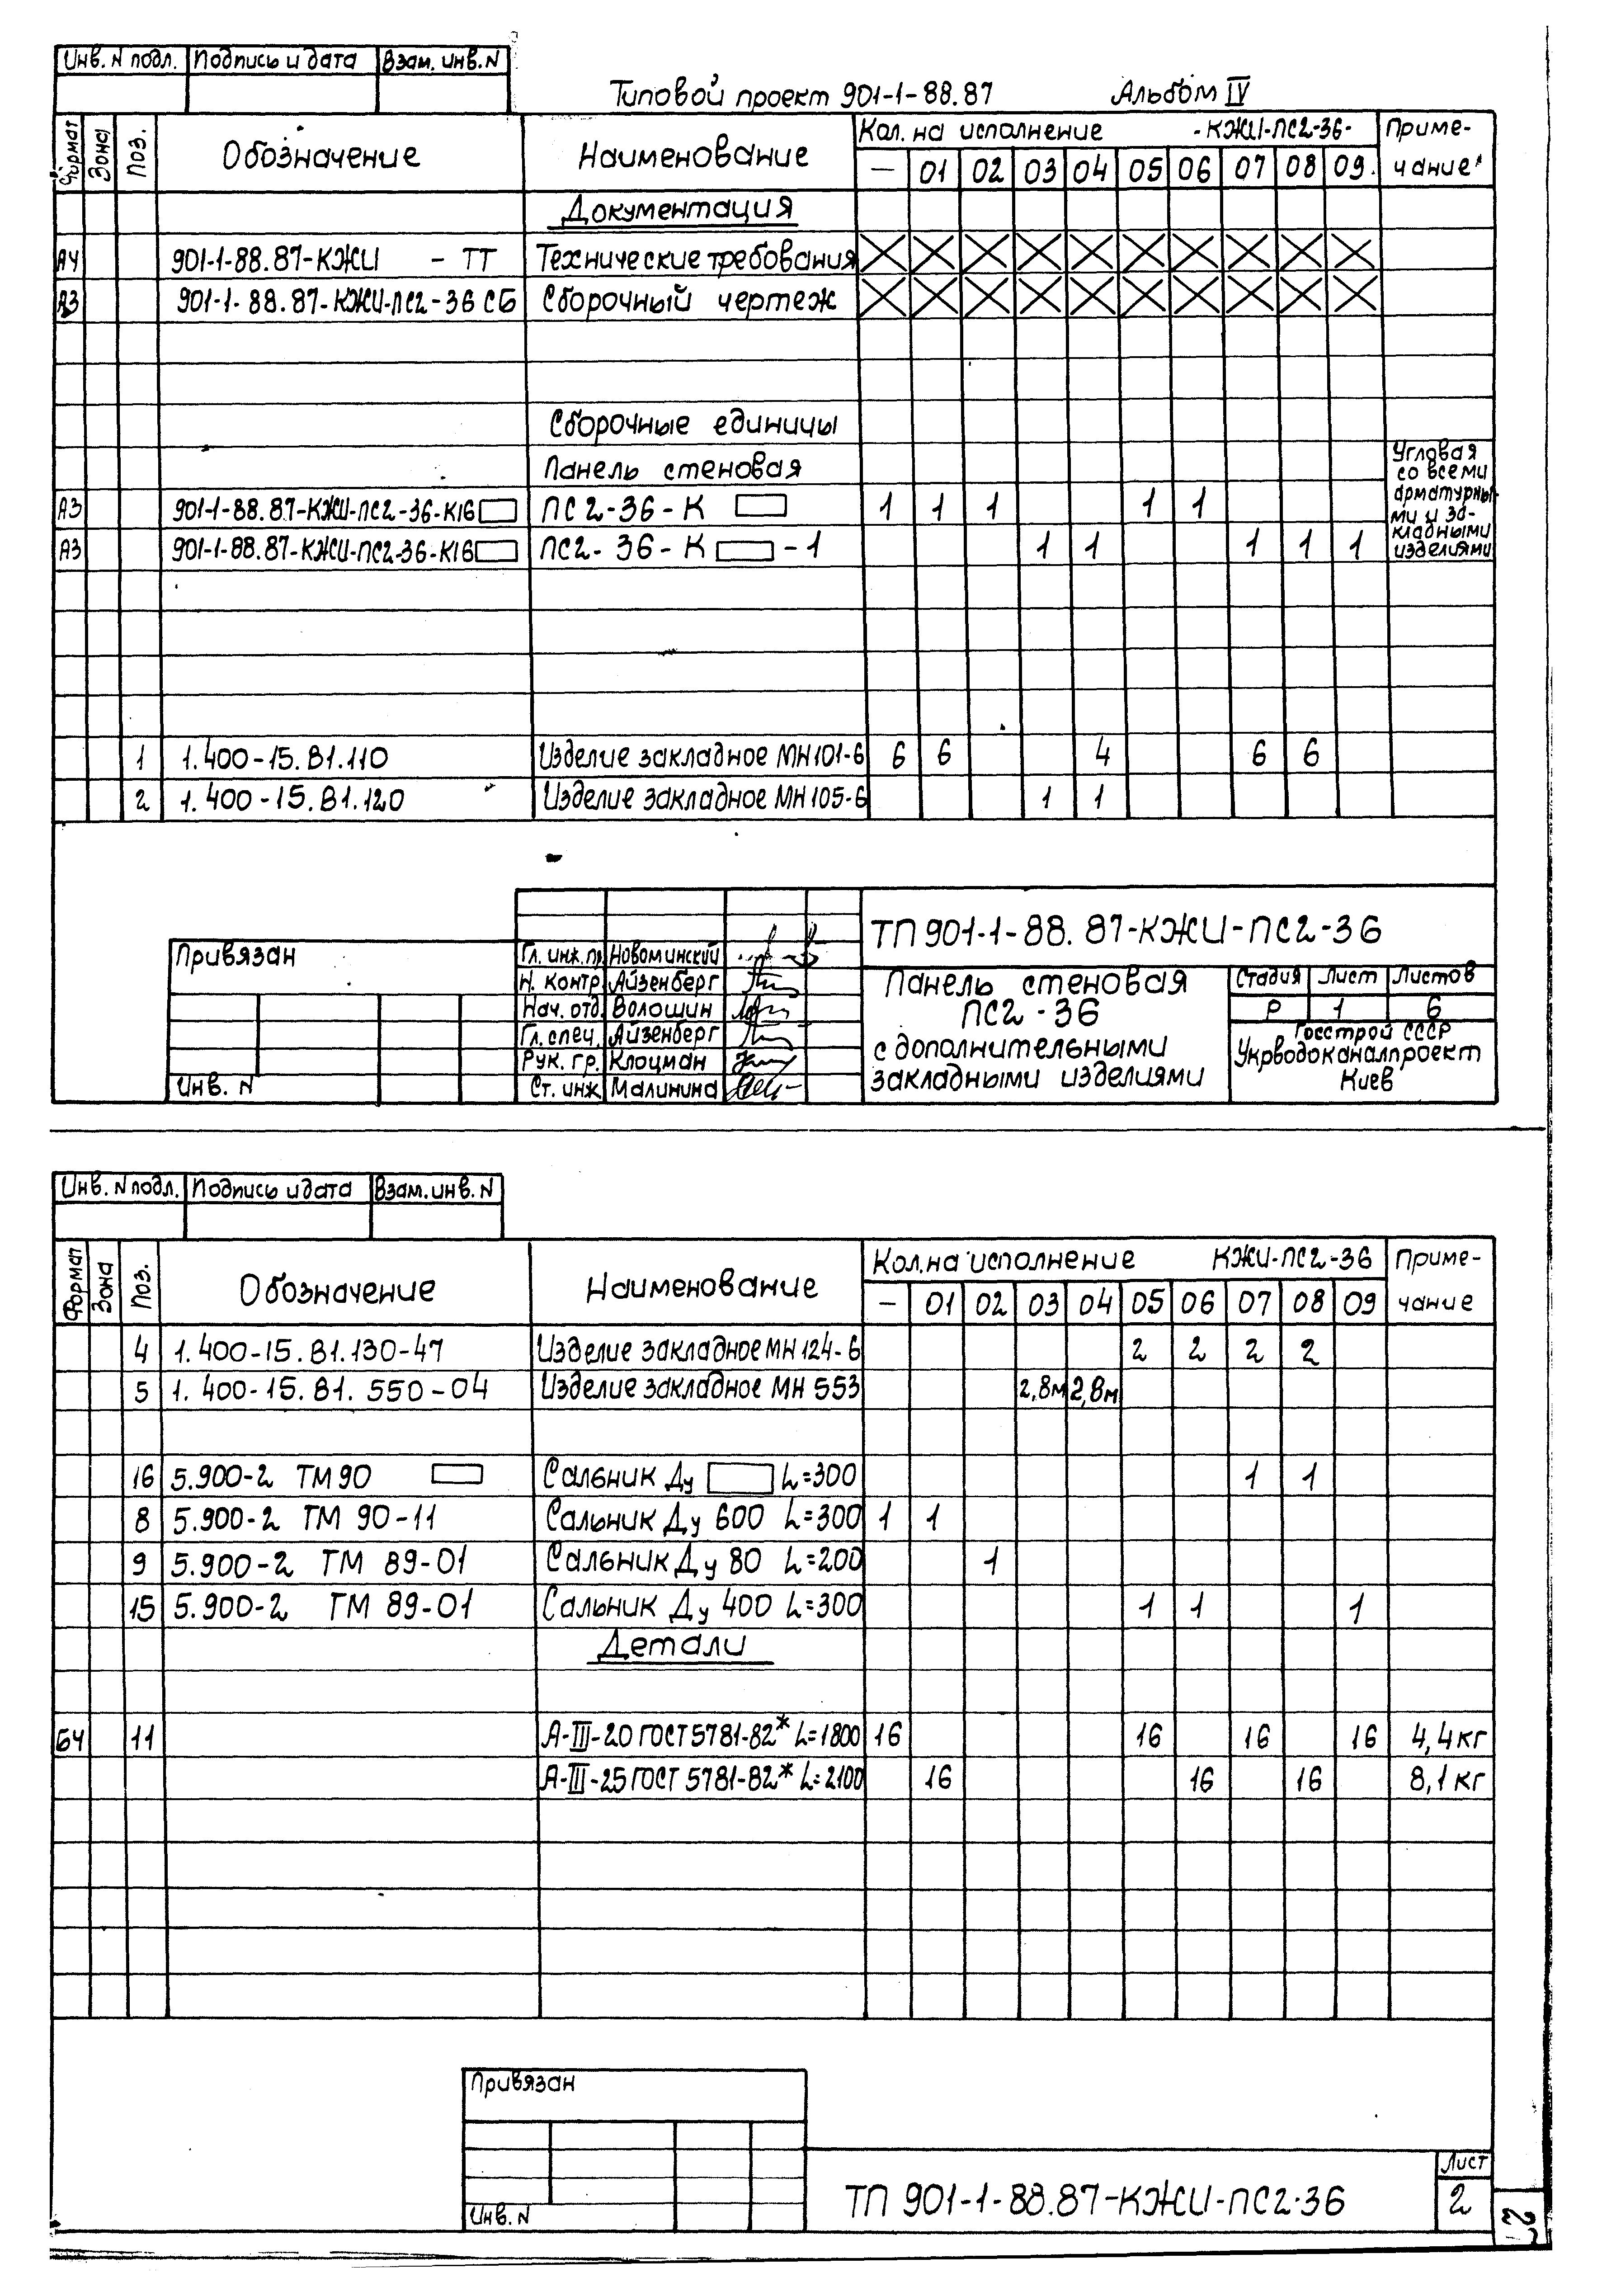 Инв. N подл. Подпись и дата Взам. инв. N
Типовой проект 901-1-88.87 Альбом IV
Формат Зона Поз. Обозначение Наименование Кол. на исполнение -КЖИ-ПС2-36- Приме-
— 01 02 03 04 05 06 07 08 09. чание
Документация
А4 901-1-88.87-КЖИ - ТТ Технические требования
А3 901-1-88.87-КЖИ-ПС2-36 СБ Сборочный чертеж
Сборочные единицы
Панель стеновая
Угловая
со всеми
арматурны-
ми и за-
кладными
изделиями
А3 901-1-88.87-КЖИ-ПС2-36-К16 ПС2-36-К 1 1 1 1 1
А3 901-1-88.87-КЖИ-ПС2-36-К16 ПС2-36-К -1 1 1 1 1 1
1 1.400-15.В1.110 Изделие закладное МН101-6 6 6 4 6 6
2 1.400-15.В1.120 Изделие закладное МН105-6 1 1
ТП 901-1-88.87-КЖИ-ПС2-36
Привязан
Инв. N
Гл. инж.пр. Новоминский
Н. контр. Айзенберг
Нач. отд. Волошин
Гл. спец. Айзенберг
Рук. гр. Клоцман
Ст. инж. Малинина
Панель стеновая
ПС2-36
с дополнительными
закладными изделиями
Стадия Лист Листов
Р 1 6
Госстрой СССР
Укрводоканалпроект
Киев
Инв. N подл. Подпись и дата Взам. инв. N
Формат Зона Поз. Обозначение Наименование Кол. на исполнение КЖИ-ПС2-36 Приме-
— 01 02 03 04 05 06 07 08 09 чание
4 1.400-15.В1.130-47 Изделие закладное МН 124-6 2 2 2 2
5 1.400-15.В1.550-04 Изделие закладное МН 553 2,8м 2,8м
16 5.900-2 ТМ90 Сальник Ду L=300 1 1
8 5.900-2 ТМ 90-11 Сальник Ду 600 L=300 1 1
9 5.900-2 ТМ 89-01 Сальник Ду 80 L=200 1
15 5.900-2 ТМ 89-01 Сальник Ду 400 L=300 1 1 1
Детали
БЧ 11 А-III-20 ГОСТ 5781-82* L=1800 16 16 16 16 4,4кг
А-III-25 ГОСТ 5781-82* L=2100 16 16 16 8,1кг
Привязан
Инв. N
ТП 901-1-88.87-КЖИ-ПС2-36
Лист
2